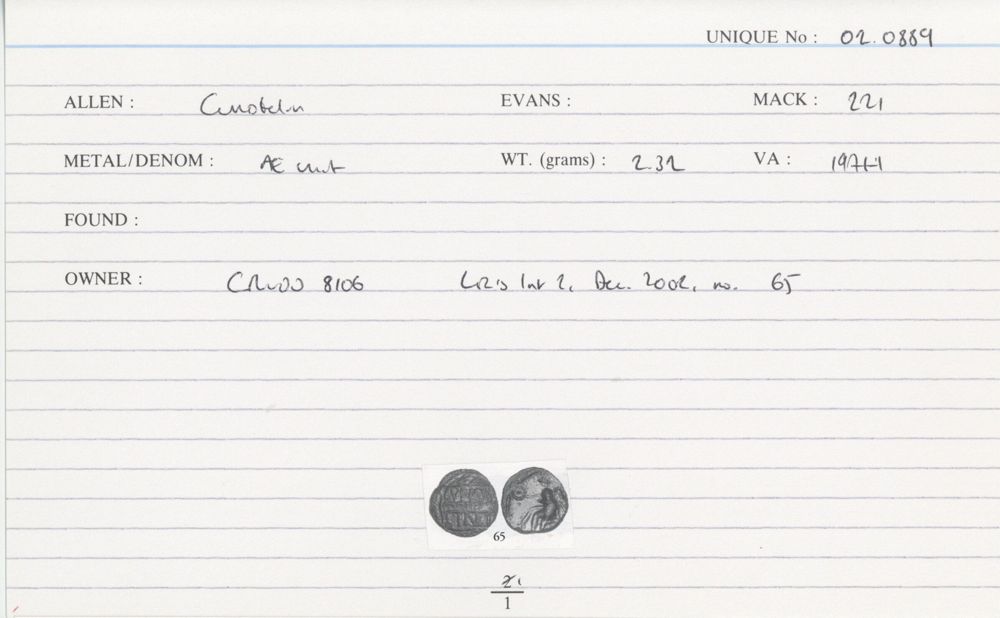 UNIQUE No : 02.0889
ALLEN : Cunobelin EVANS : MACK : 221
METAL/DENOM : Æ unit WT. (grams) : 2.32 VA : 1971-1
FOUND :
OWNER : 8106 Dec. 2002, no. 65
65
1